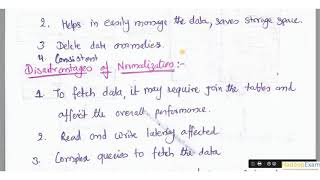 2. Helps in easily manage the data, saves storage space.
3 Delete data anomalies.
4. Consistent
Disadvantages of Normalization:-
1. To fetch data, it may require join the tables and
affect the overall performance.
2. Read and write latency affected
3. Complex queries to fetch the data
HadoopExam